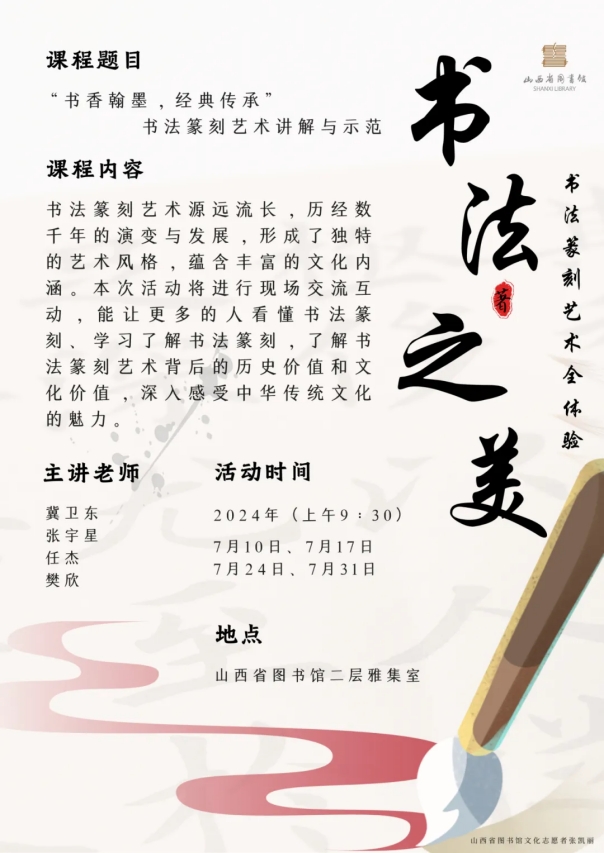 课程题目
“书香翰墨，经典传承”
书法篆刻艺术讲解与示范
课程内容
书法篆刻艺术源远流长，历经数
千年的演变与发展，形成了独特
的艺术风格，蕴含丰富的文化内
涵。本次活动将进行现场交流互
动，能让更多的人看懂书法篆
刻、学习了解书法篆刻，了解书
法篆刻艺术背后的历史价值和文
化价值，深入感受中华传统文化
的魅力。
主讲老师
冀卫东
张宇星
任杰
樊欣
活动时间
2024年（上午9：30）
7月10日、7月17日
7月24日、7月31日
地点
山西省图书馆二层雅集室
书法之美
著
书法篆刻艺术全体验
山西省图书馆
SHANXI LIBRARY
山西省图书馆文化志愿者张凯丽